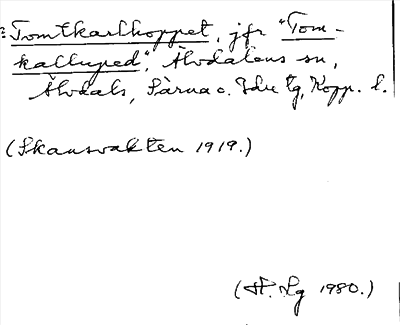 Tomtkarlhoppet, jfr "Tom-
kalluped", Älvdalens sn,
Älvdals, Särna o. Idre tg, Kopp. l.
(Skansvakten 1919.)
(H. Lg 1980.)